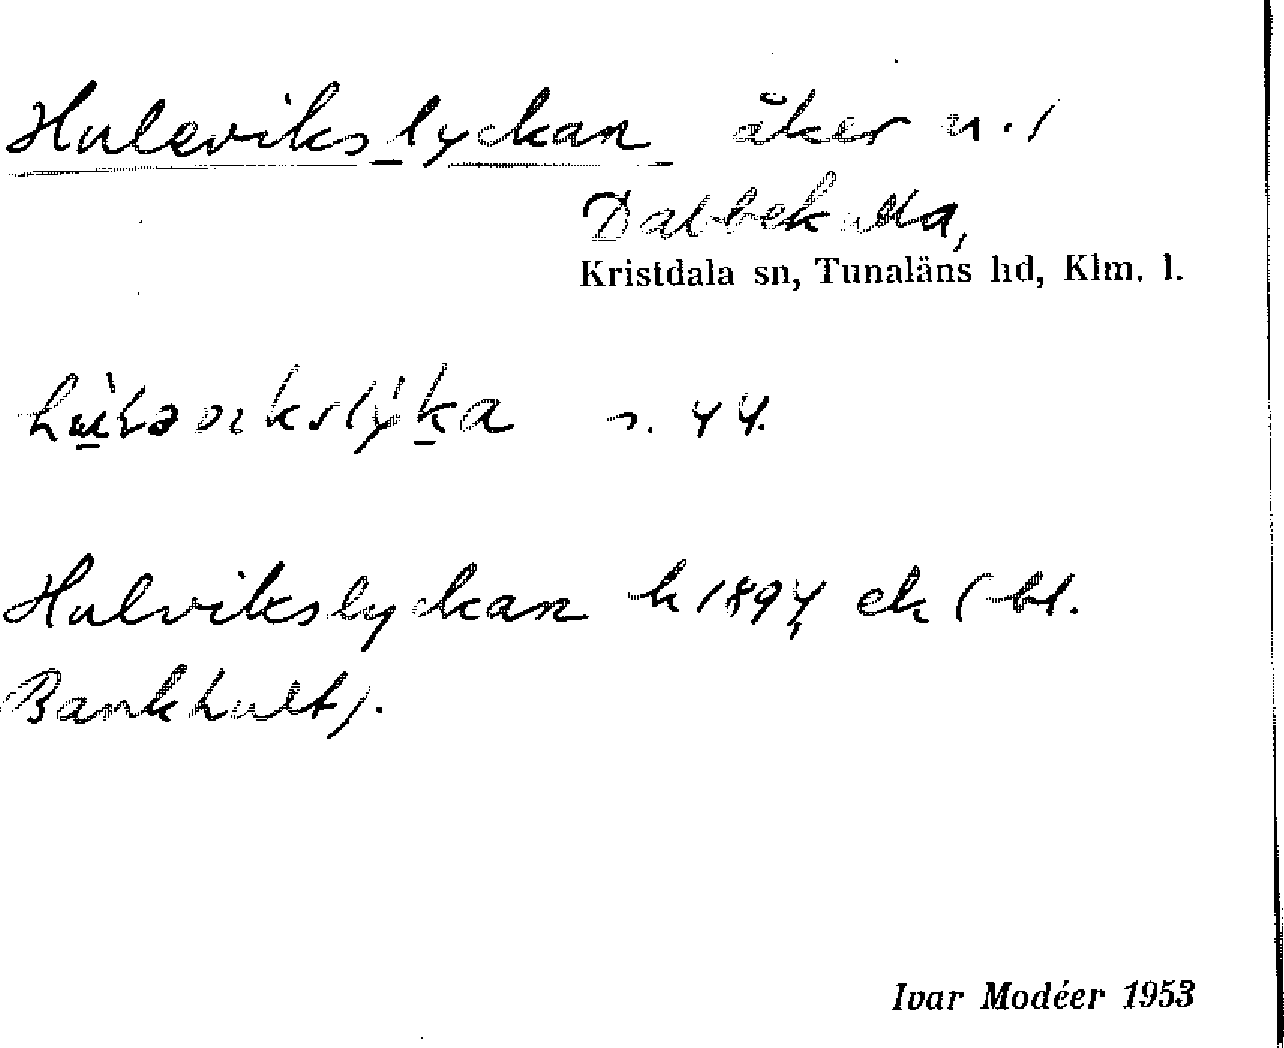 Hulevikslyckan åker n. 1
Dabbekulla,
Kristdala sn, Tunaläns hd, Klm. l.
s. 44.
Hulvikslyckan h 1894 ek (bl.
Bankhult).
Ivar Modéer 1953